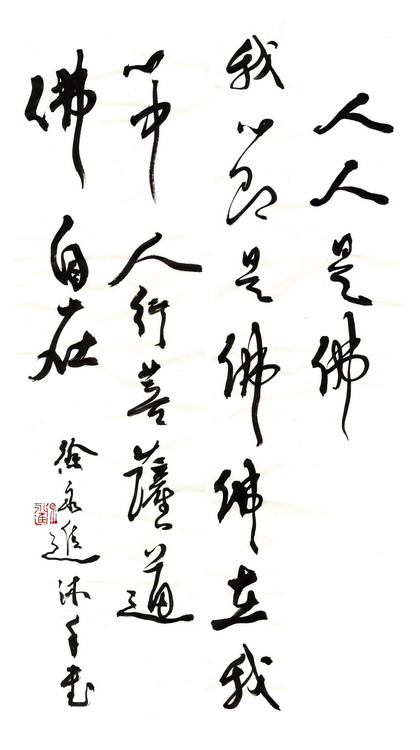 人人是佛
我心即是佛佛在我
心中 人行菩薩道
佛 自在
徐永進沐手書